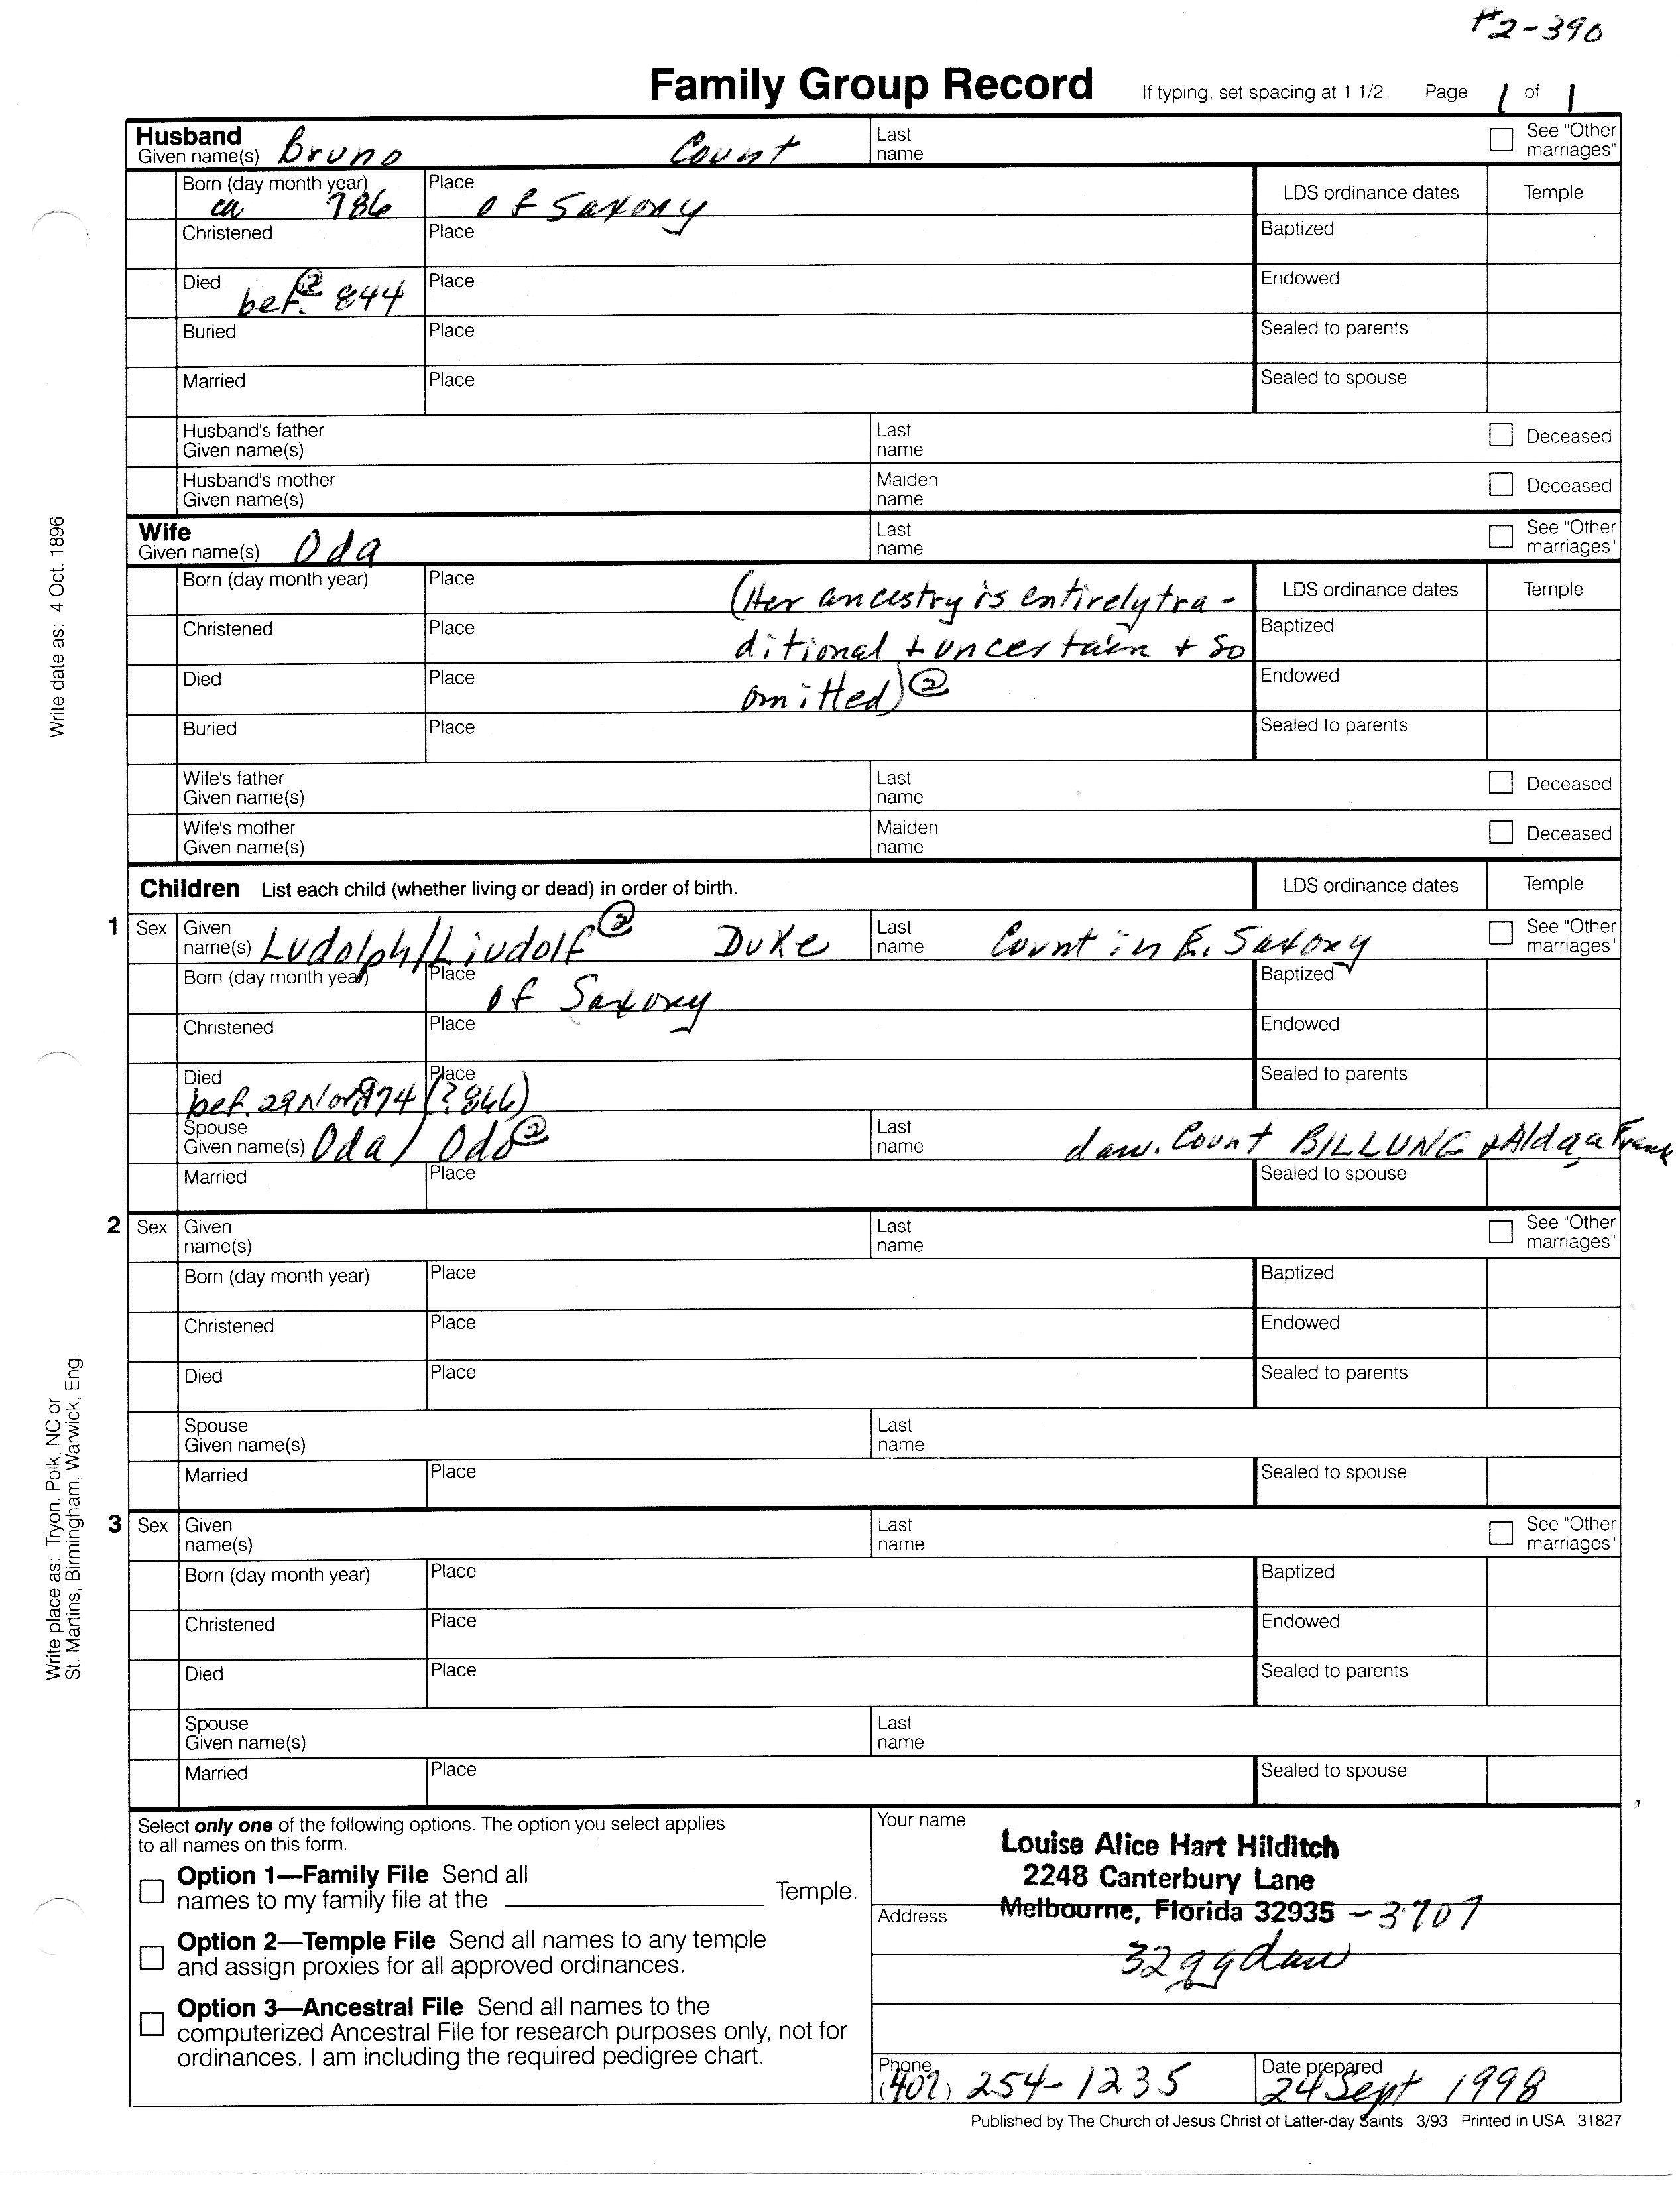 #2-390
Family Group Record If typing, set spacing at 1 1/2. Page 1 of 1
Husband
Given name(s) Bruno Count Last name See "Other marriages"
Born (day month year) ca 786 Place of Saxony LDS ordinance dates Temple
Christened Place Baptized
Died bef. ② 844 Place Endowed
Buried Place Sealed to parents
Married Place Sealed to spouse
Husband's father Given name(s) Last name Deceased
Husband's mother Given name(s) Maiden name Deceased
Wife
Given name(s) Oda Last name See "Other marriages"
Born (day month year) Place (Her ancestry is entirely tra- LDS ordinance dates Temple
Christened Place ditional + uncertain + so Baptized
Died Place omitted) ② Endowed
Buried Place Sealed to parents
Wife's father Given name(s) Last name Deceased
Wife's mother Given name(s) Maiden name Deceased
Children List each child (whether living or dead) in order of birth. LDS ordinance dates Temple
1 Sex Given name(s) Ludolph/Liudolf ② Duke Last name Count in E. Saxony See "Other marriages"
Born (day month year) Place of Saxony Baptized
Christened Place Endowed
Died bef. 29 Nov 874 (?866) Place Sealed to parents
Spouse Given name(s) Oda / Odo ② Last name dau. Count BILLUNG + Alda, a Frank
Married Place Sealed to spouse
2 Sex Given name(s) Last name See "Other marriages"
Born (day month year) Place Baptized
Christened Place Endowed
Died Place Sealed to parents
Spouse Given name(s) Last name
Married Place Sealed to spouse
3 Sex Given name(s) Last name See "Other marriages"
Born (day month year) Place Baptized
Christened Place Endowed
Died Place Sealed to parents
Spouse Given name(s) Last name
Married Place Sealed to spouse
Select only one of the following options. The option you select applies
to all names on this form.
Option 1—Family File Send all
names to my family file at the Temple.
Option 2—Temple File Send all names to any temple
and assign proxies for all approved ordinances.
Option 3—Ancestral File Send all names to the
computerized Ancestral File for research purposes only, not for
ordinances. I am including the required pedigree chart.
Your name Louise Alice Hart Hilditch
2248 Canterbury Lane
Address Melbourne, Florida 32935 -3707
32 gg dau
Phone (407) 254-1235 Date prepared 24 Sept 1998
Published by The Church of Jesus Christ of Latter-day Saints 3/93 Printed in USA 31827
Write date as: 4 Oct. 1896
Write place as: Tryon, Polk, NC or
St. Martins, Birmingham, Warwick, Eng.